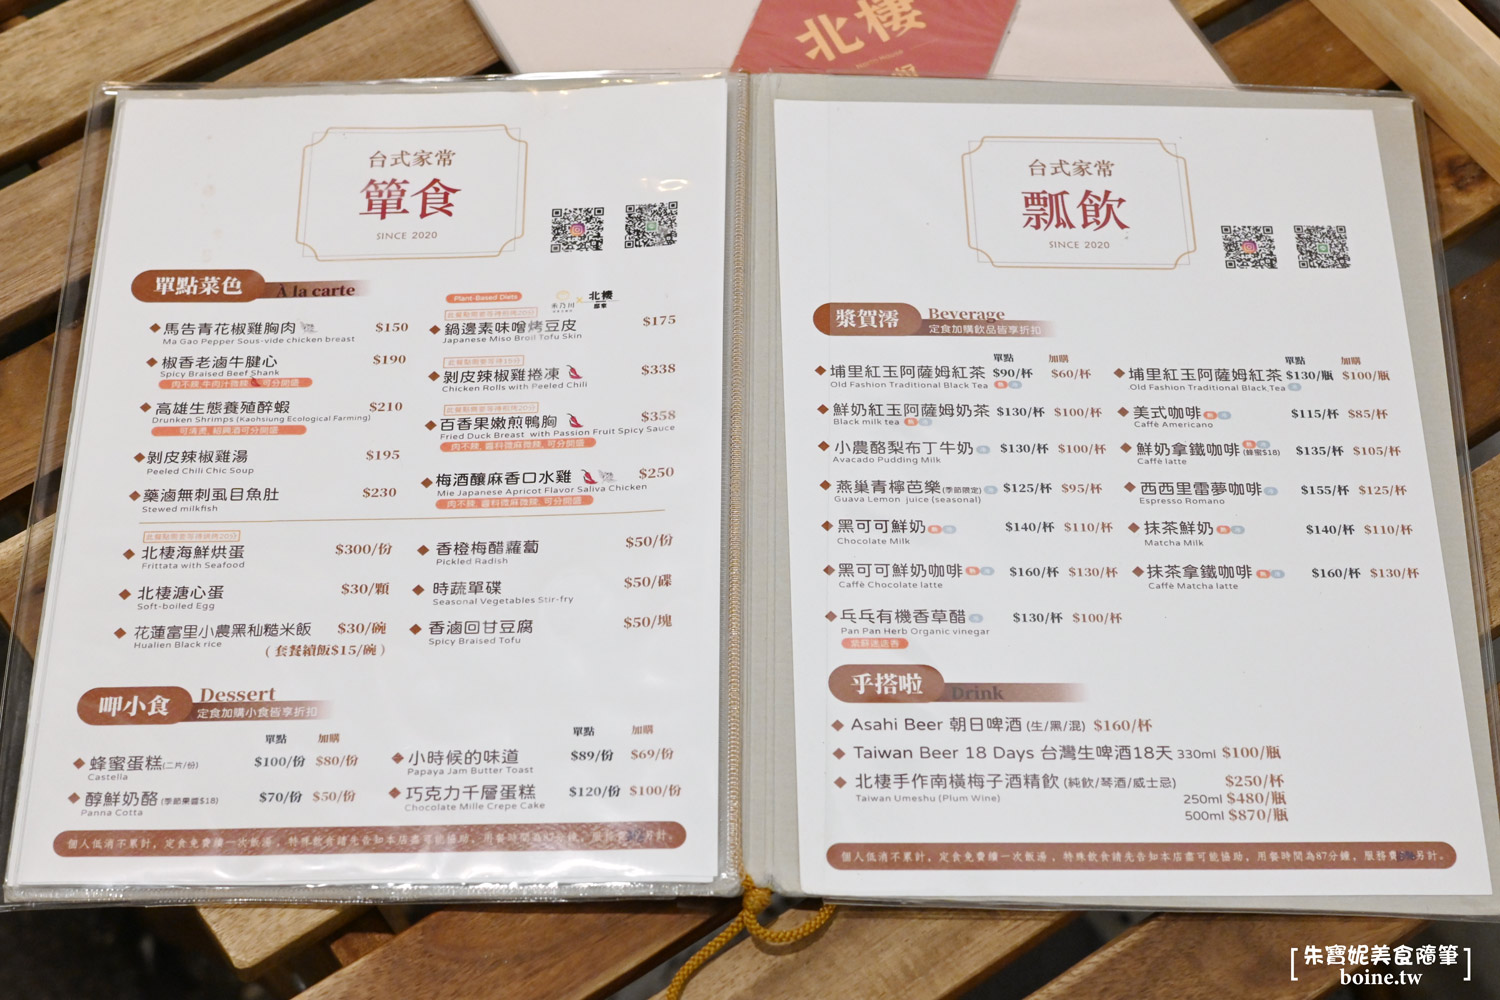 北棲
台式家常
簞食
SINCE 2020
單點菜色 À la carte
馬告青花椒雞胸肉 $150
Ma Gao Pepper Sous-vide chicken breast
椒香老滷牛腱心 $190
Spicy Braised Beef Shank
肉不辣,牛肉汁微辣 可分開盛
高雄生態養殖醉蝦 $210
Drunken Shrimps (Kaohsiung Ecological Farming)
可清燙, 紹興酒可分開盛
剝皮辣椒雞湯 $195
Peeled Chili Chic Soup
藥滷無刺虱目魚肚 $230
Stewed milkfish
Plant-Based Diets
禾乃川 × 北棲
此餐點需要等待煎烤20分
鍋邊素味噌烤豆皮 $175
Japanese Miso Broil Tofu Skin
此餐點需要等待15分
剝皮辣椒雞捲凍 $338
Chicken Rolls with Peeled Chili
此餐點需要等待煎烤20分
百香果嫩煎鴨胸 $358
Fried Duck Breast with Passion Fruit Spicy Sauce
肉不辣, 醬料微麻微辣, 可分開盛
梅酒釀麻香口水雞 $250
Mie Japanese Apricot Flavor Saliva Chicken
肉不辣, 醬料微麻微辣, 可分開盛
此餐點需要等待烘烤20分
北棲海鮮烘蛋 $300/份
Frittata with Seafood
北棲溏心蛋 $30/顆
Soft-boiled Egg
花蓮富里小農黑秈糙米飯 $30/碗
Hualien Black rice
( 套餐續飯$15/碗 )
香橙梅醋蘿蔔 $50/份
Pickled Radish
時蔬單碟 $50/碟
Seasonal Vegetables Stir-fry
香滷回甘豆腐 $50/塊
Spicy Braised Tofu
呷小食 Dessert
定食加購小食皆享折扣
單點 加購
蜂蜜蛋糕(二片/份) $100/份 $80/份
Castella
醇鮮奶酪 (季節果醬$18) $70/份 $50/份
Panna Cotta
單點 加購
小時候的味道 $89/份 $69/份
Papaya Jam Butter Toast
巧克力千層蛋糕 $120/份 $100/份
Chocolate Mille Crepe Cake
個人低消不累計, 定食免費續一次飯湯, 特殊飲食請先告知本店盡可能協助, 用餐時間為87分鐘, 服務費另計。
台式家常
瓢飲
SINCE 2020
漿賀澪 Beverage
定食加購飲品皆享折扣
單點 加購
埔里紅玉阿薩姆紅茶 $90/杯 $60/杯
Old Fashion Traditional Black Tea 熱 冷
鮮奶紅玉阿薩姆奶茶 $130/杯 $100/杯
Black milk tea 熱 冷
小農酪梨布丁牛奶 冷 $130/杯 $100/杯
Avacado Pudding Milk
燕巢青檸芭樂(季節限定) 冷 $125/杯 $95/杯
Guava Lemon juice (seasonal)
黑可可鮮奶 熱 冷 $140/杯 $110/杯
Chocolate Milk
黑可可鮮奶咖啡 熱 冷 $160/杯 $130/杯
Caffè Chocolate latte
乓乓有機香草醋 冷 $130/杯 $100/杯
Pan Pan Herb Organic vinegar
單點 加購
埔里紅玉阿薩姆紅茶 $130/瓶 $100/瓶
Old Fashion Traditional Black Tea 冷
美式咖啡 熱 冷 $115/杯 $85/杯
Caffè Americano
鮮奶拿鐵咖啡 熱 冷 (蜂蜜$18) $135/杯 $105/杯
Caffè latte
西西里雷夢咖啡 冷 $155/杯 $125/杯
Espresso Romano
抹茶鮮奶 熱 冷 $140/杯 $110/杯
Matcha Milk
抹茶拿鐵咖啡 熱 冷 $160/杯 $130/杯
Caffè Matcha latte
乎搭啦 Drink
Asahi Beer 朝日啤酒 (生/黑/混) $160/杯
Taiwan Beer 18 Days 台灣生啤酒18天 330ml $100/瓶
北棲手作南橫梅子酒精飲 (純飲/琴酒/威士忌) $250/杯
Taiwan Umeshu (Plum Wine) 250ml $480/瓶
500ml $870/瓶
個人低消不累計, 定食免費續一次飯湯, 特殊飲食請先告知本店盡可能協助, 用餐時間為87分鐘, 服務費另計。
[朱寶妮美食隨筆]
boine.tw